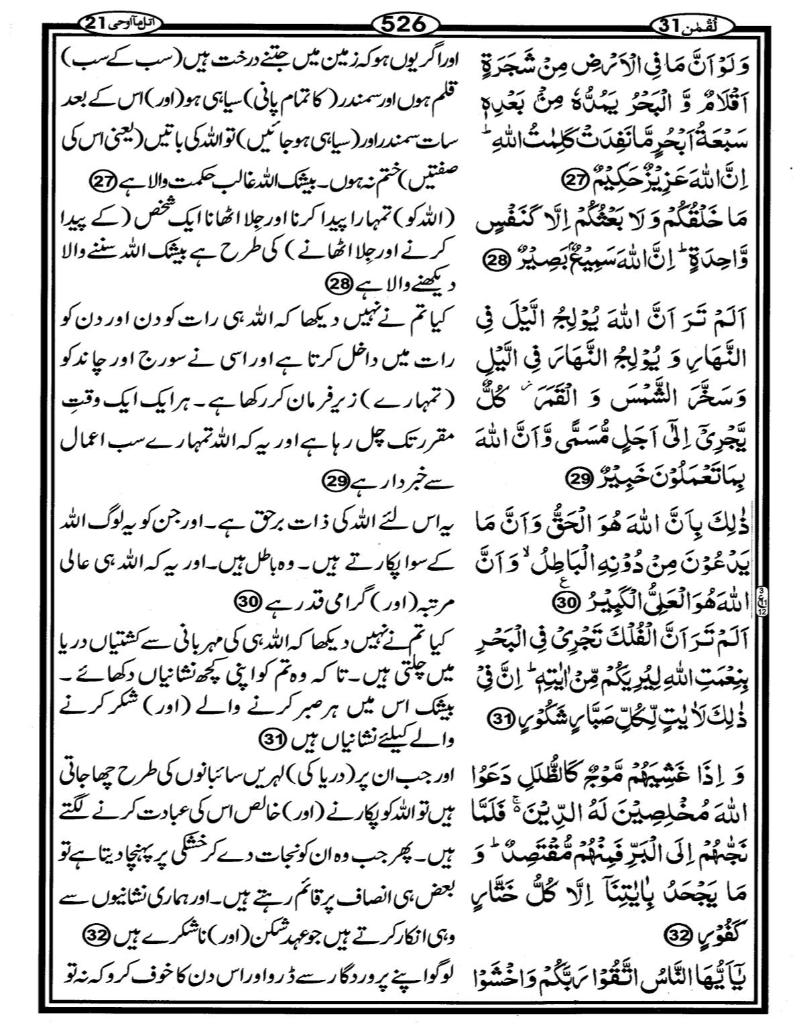 لُقْمٰن 31
526
اتل مآ اوحی 21
وَلَوْ اَنَّ مَا فِی الْاَرْضِ مِنْ شَجَرَةٍ
اَقْلَامٌ وَّ الْبَحْرُ یَمُدُّهٗ مِنْۢ بَعْدِهٖ
سَبْعَةُ اَبْحُرٍ مَّا نَفِدَتْ كَلِمٰتُ اللّٰهِ ؕ
اِنَّ اللّٰهَ عَزِیْزٌ حَكِیْمٌ 27
مَا خَلْقُكُمْ وَ لَا بَعْثُكُمْ اِلَّا كَنَفْسٍ
وَّاحِدَةٍ ؕ اِنَّ اللّٰهَ سَمِیْعٌۢ بَصِیْرٌ 28
اَلَمْ تَرَ اَنَّ اللّٰهَ یُوْلِجُ الَّیْلَ فِی
النَّهَارِ وَ یُوْلِجُ النَّهَارَ فِی الَّیْلِ
وَسَخَّرَ الشَّمْسَ وَ الْقَمَرَ ۫ كُلٌّ
یَّجْرِیْۤ اِلٰۤی اَجَلٍ مُّسَمًّی وَّ اَنَّ اللّٰهَ
بِمَا تَعْمَلُوْنَ خَبِیْرٌ 29
ذٰلِكَ بِاَنَّ اللّٰهَ هُوَ الْحَقُّ وَ اَنَّ مَا
یَدْعُوْنَ مِنْ دُوْنِهِ الْبَاطِلُ ۙ وَ اَنَّ
اللّٰهَ هُوَ الْعَلِیُّ الْكَبِیْرُ ع 30
اَلَمْ تَرَ اَنَّ الْفُلْكَ تَجْرِیْ فِی الْبَحْرِ
بِنِعْمَتِ اللّٰهِ لِیُرِیَكُمْ مِّنْ اٰیٰتِهٖ ؕ اِنَّ فِیْ
ذٰلِكَ لَاٰیٰتٍ لِّكُلِّ صَبَّارٍ شَكُوْرٍ 31
وَ اِذَا غَشِیَهُمْ مَّوْجٌ كَالظُّلَلِ دَعَوُا
اللّٰهَ مُخْلِصِیْنَ لَهُ الدِّیْنَ ۚ۬ فَلَمَّا
نَجّٰىهُمْ اِلَی الْبَرِّ فَمِنْهُمْ مُّقْتَصِدٌ ؕ وَ
مَا یَجْحَدُ بِاٰیٰتِنَاۤ اِلَّا كُلُّ خَتَّارٍ
كَفُوْرٍ 32
یٰۤاَیُّهَا النَّاسُ اتَّقُوْا رَبَّكُمْ وَ اخْشَوْا
اور اگر یوں ہو کہ زمین میں جتنے درخت ہیں (سب کے سب)
قلم ہوں اور سمندر (کا تمام پانی) سیاہی ہو (اور) اس کے بعد
سات سمندر اور (سیاہی ہو جائیں) تو اللہ کی باتیں (یعنی اس کی
صفتیں) ختم نہ ہوں۔ بیشک اللہ غالب حکمت والا ہے 27
(اللہ کو) تمہارا پیدا کرنا اور جِلا اٹھانا ایک شخص (کے پیدا
کرنے اور جِلا اٹھانے) کی طرح ہے بیشک اللہ سننے والا
دیکھنے والا ہے 28
کیا تم نے نہیں دیکھا کہ اللہ ہی رات کو دن اور دن کو
رات میں داخل کرتا ہے اور اسی نے سورج اور چاند کو
(تمہارے) زیر فرمان کر رکھا ہے۔ ہر ایک ایک وقتِ
مقرر تک چل رہا ہے اور یہ کہ اللہ تمہارے سب اعمال
سے خبردار ہے 29
یہ اس لئے اللہ کی ذات برحق ہے۔ اور جن کو یہ لوگ اللہ
کے سوا پکارتے ہیں۔ وہ باطل ہیں۔ اور یہ کہ اللہ ہی عالی
مرتبہ (اور) گرامی قدر ہے 30
کیا تم نے نہیں دیکھا کہ اللہ ہی کی مہربانی سے کشتیاں دریا
میں چلتی ہیں۔ تا کہ وہ تم کو اپنی کچھ نشانیاں دکھائے۔
بیشک اس میں ہر صبر کرنے والے (اور) شکر کرنے
والے کیلئے نشانیاں ہیں 31
اور جب ان پر (دریا کی) لہریں سائبانوں کی طرح چھا جاتی
ہیں تو اللہ کو پکارنے (اور) خالص اس کی عبادت کرنے لگتے
ہیں۔ پھر جب وہ ان کو نجات دے کر خشکی پر پہنچا دیتا ہے تو
بعض ہی انصاف پر قائم رہتے ہیں۔ اور ہماری نشانیوں سے
وہی انکار کرتے ہیں جو عہد شکن (اور) ناشکرے ہیں 32
لوگو اپنے پروردگار سے ڈرو اور اس دن کا خوف کرو کہ نہ تو